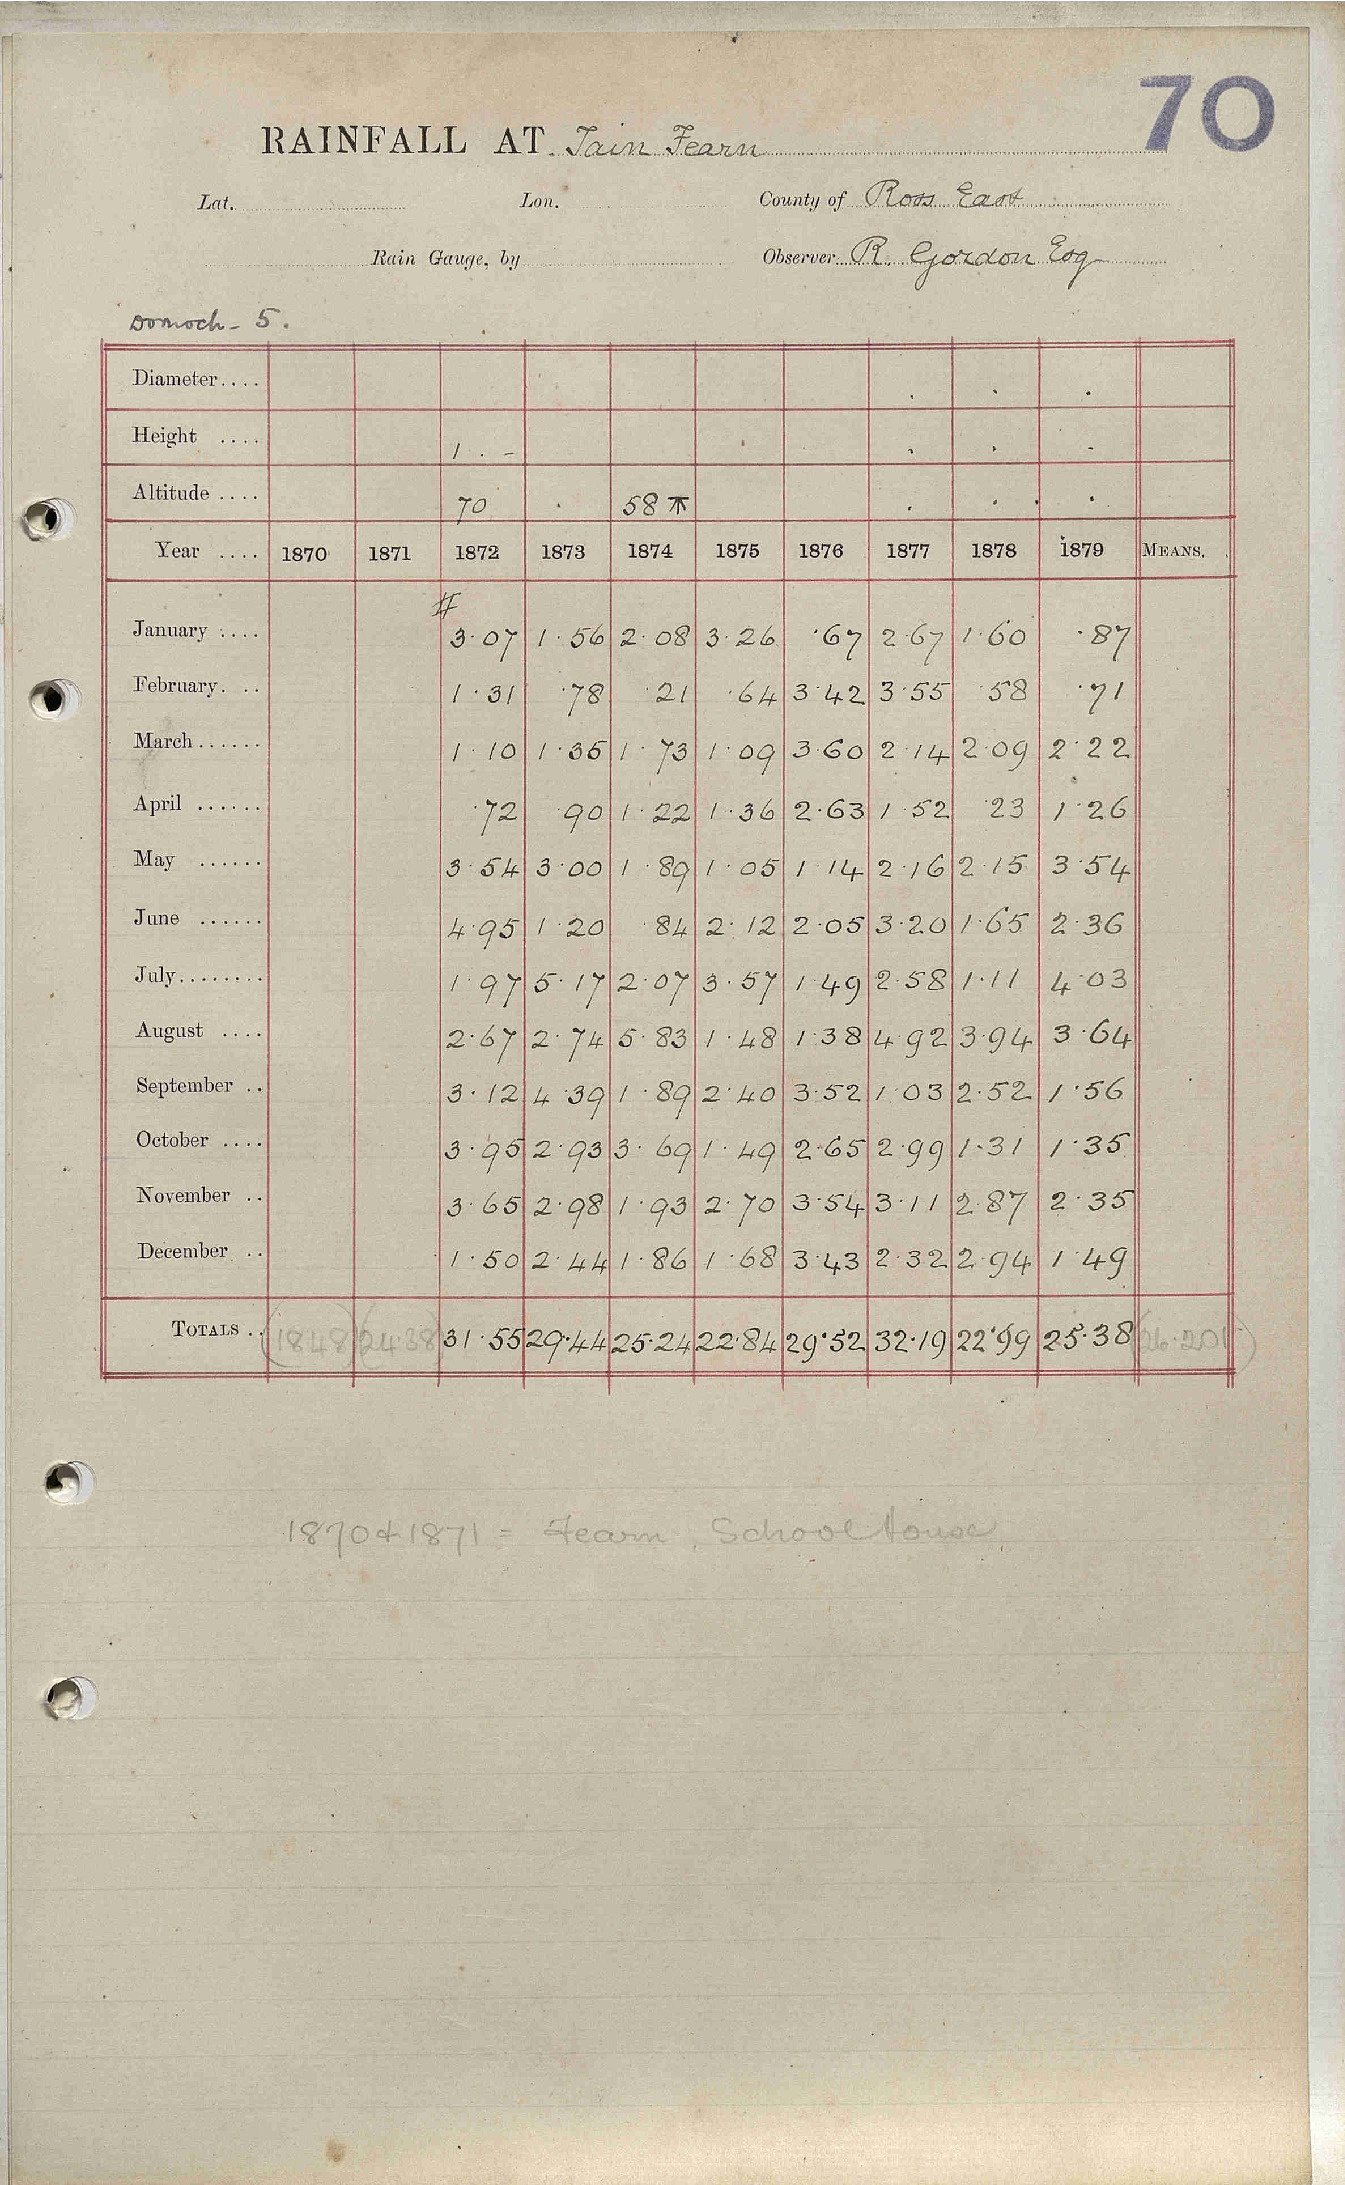 70
RAINFALL AT Tain Fearn
Lat. Lon. County of Ross East
Rain Gauge, by Observer R. Gordon Esq
Dornoch - 5.
Diameter....
Height .... 1 . -
Altitude .... 70 58 T
Year .... 1870 1871 1872 1873 1874 1875 1876 1877 1878 1879 MEANS.
#
January .... 3.07 1.56 2.08 3.26 .67 2.67 1.60 .87
February. .. 1.31 .78 .21 .64 3.42 3.55 .58 .71
March...... 1.10 1.35 1.73 1.09 3.60 2.14 2.09 2.22
April ...... .72 .90 1.22 1.36 2.63 1.52 .23 1.26
May ...... 3.54 3.00 1.89 1.05 1.14 2.16 2.15 3.54
June ...... 4.95 1.20 .84 2.12 2.05 3.20 1.65 2.36
July........ 1.97 5.17 2.07 3.57 1.49 2.58 1.11 4.03
August .... 2.67 2.74 5.83 1.48 1.38 4.92 3.94 3.64
September .. 3.12 4.39 1.89 2.40 3.52 1.03 2.52 1.56
October .... 3.95 2.93 3.69 1.49 2.65 2.99 1.31 1.35
November .. 3.65 2.98 1.93 2.70 3.54 3.11 2.87 2.35
December .. 1.50 2.44 1.86 1.68 3.43 2.32 2.94 1.49
TOTALS .. (18.48) (24.38) 31.55 29.44 25.24 22.84 29.52 32.19 22.99 25.38 (26.201)
1870 & 1871 = Fearn, School House